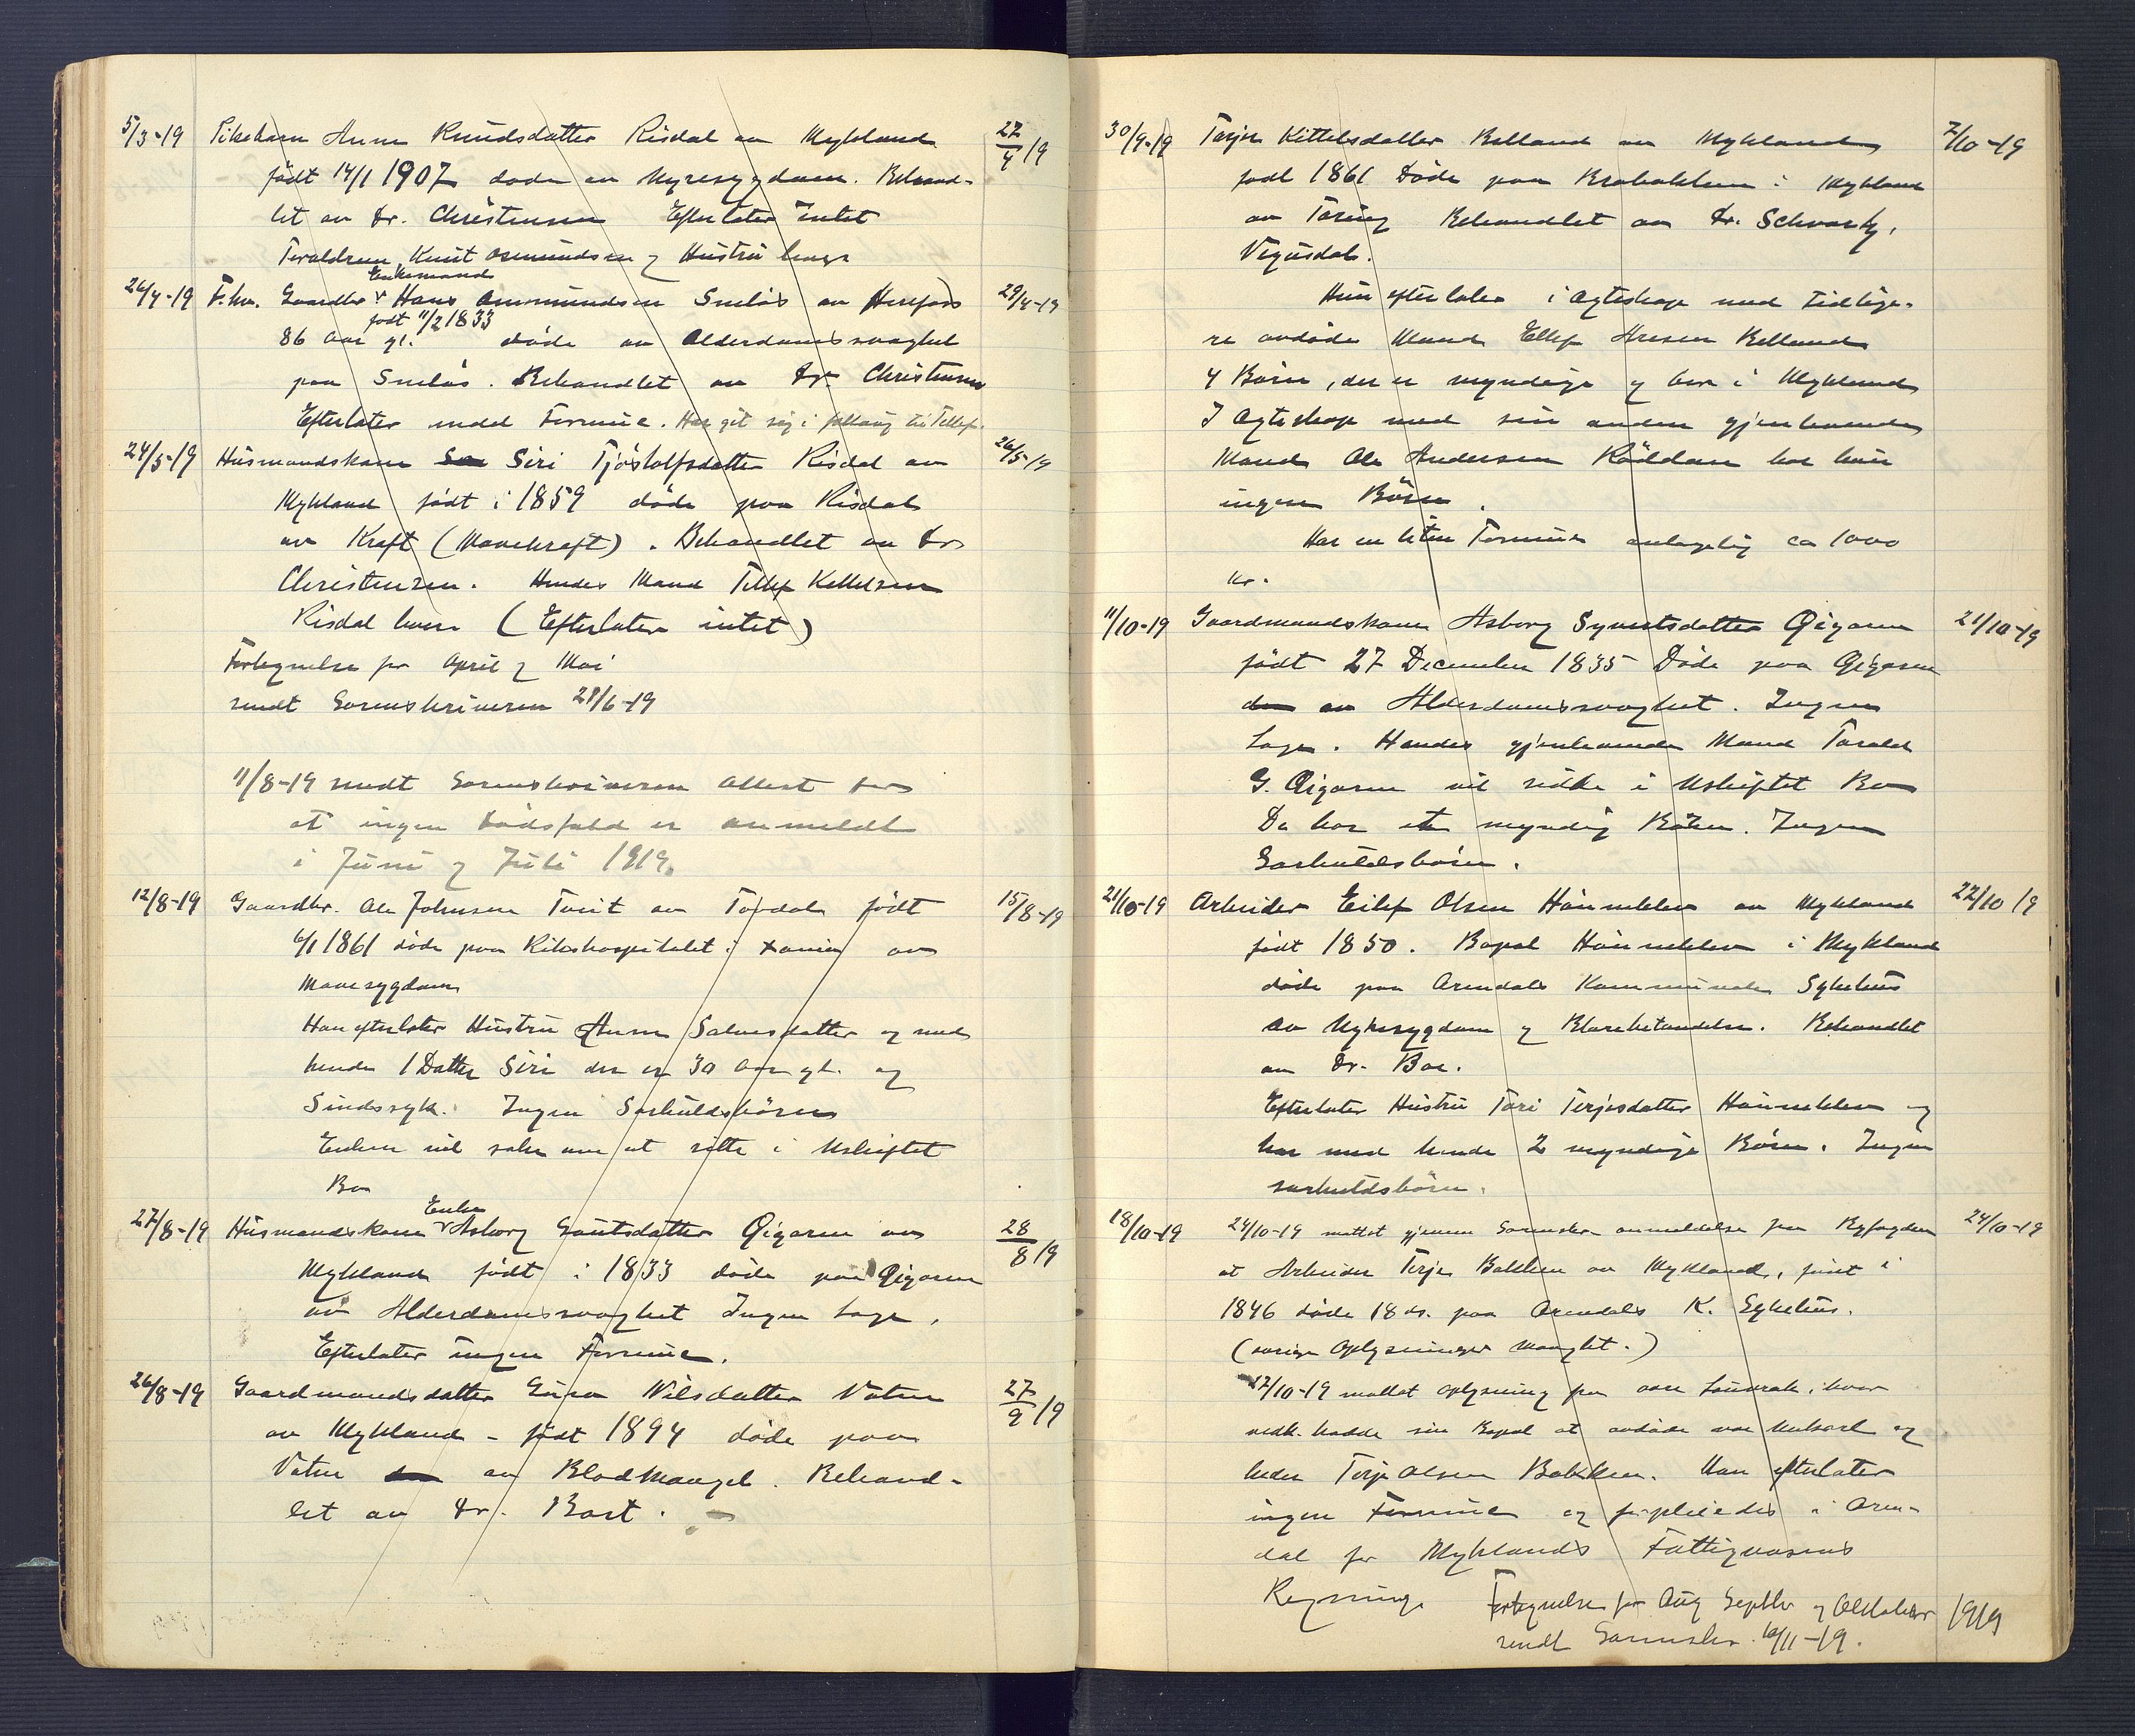 5/3-19 Pikebarn Anne Knudsdatter Risdal av Mykland 27/4 19
født 14/1 1907 døde av Nyresygdom. Behand-
let av Dr. Christensen Efterlater Intet
Forældrene Knut Osmundsen og Hustru lever
26/4-19 F.hv. Gaardbr Enkemand Hans Ommundsen Smelås av Herefoss 29/4-19
86 aar gl. født 11/2 1833 døde av Alderdomssvaghet
paa Smelås. Behandlet av Dr Christensen
Efterlater endel Formue. Har git sig i follaug til Tellef.
24/5-19 Husmandskone Siri Tjøstolfsdatter Risdal av 26/5-19
Mykland født i 1859 døde paa Risdal
av Kræft (Mavekræft). Behandlet av Dr
Christensen. Hendes Mand Tellef Kettelsen
Risdal lever (Efterlater intet)
Fortegnelse for April og Mai
sendt Sorenskriveren 28/6-19
11/8-19 sendt Sorenskriveren Attest for
at ingen Dødsfald er anmeldt
i Juni og Juli 1919.
12/8-19 Gaardbr. Ole Johnsen Tveit av Tovdal født 15/8-19
6/1 1861 døde paa Rikshospitalet i av
Mavesygdom
Han efterlater Hustru Anne Salvesdatter og med
hende 1 Datter Siri der er 30 Aar gl. og
Sindssyk. Ingen Særkuldsbørn
Enken vil søke om at sitte i Uskiftet
Bo
27/8-19 Husmandskone Enke Asborg Gautsdatter Øigaren av 28/8 19
Mykland født i 1833 døde paa Øigaren
av Alderdomssvaghet Ingen Læge.
Efterlater ingen Formue.
26/8-19 Gaardmandsdatter Nilsdatter Vatne 27/9 19
av Mykland - født 1894 døde paa
Vatne av Blodmangel. Behand-
let av Dr.
30/9-19 Kittelsdatter Belland av Mykland 7/10-19
født 1861 Døde paa i Mykland
av Tæring Behandlet av Dr. Schvartz,
Vegusdal.
Hun efterlater i Ægteskap med tidlige-
re avdøde Mand Ellef Aresen Belland
4 Børn, der er myndige og bor i Mykland
I Ægteskap med sin anden gjenlevende
Mand Ole Andersen har hun
ingen Børn.
Har en liten Formue antagelig ca 1000
kr.
11/10-19 Gaardmandskone Asborg Syvertsdatter Øigaren 21/10-19
født 27 December 1835 Døde paa Øigaren
av Alderdomssvaghet. Ingen
Læge. Hendes gjenlevende Mand Torald
G. Øigaren vil sidde i Uskiftet Bo
De har et myndig Barn. Ingen
Særkuldsbørn.
21/10-19 Arbeider Eilef Olsen Haunekleiv av Mykland 22/10 19
født 1850. Bopæl Haunekleiv i Mykland
døde paa Arendals Kommunale Sykehus
av Nyresygdom og Blærebetændelse. Behandlet
av Dr. Boe.
Efterlater Hustru Tori Terjesdatter Haunekleiv og
har med hende 2 myndige Børn. Ingen
særkuldsbørn.
18/10-19 24/10-19 mottat gjennem Sorenskr. anmeldelse fra Byfogden 24/10-19
at Arbeider Terje Bakken av Mykland, født i
1846 døde 18 ds. paa Arendals K. Sykehus.
(øvrige Oplysninger manglet.)
27/10-19 mottat oplysning fra hvor
vedk. hadde sin Bopæl at avdøde var Unkarl og
heder Terje Olsen Bakken. Han efterlater
ingen Formue og forpleiedes i Aren-
dal for Myklands Fattigvæsens
Regning. Fortegnelse for Aug Septbr og Oktober 1919
sendt Sorenskr. 10/11-19.